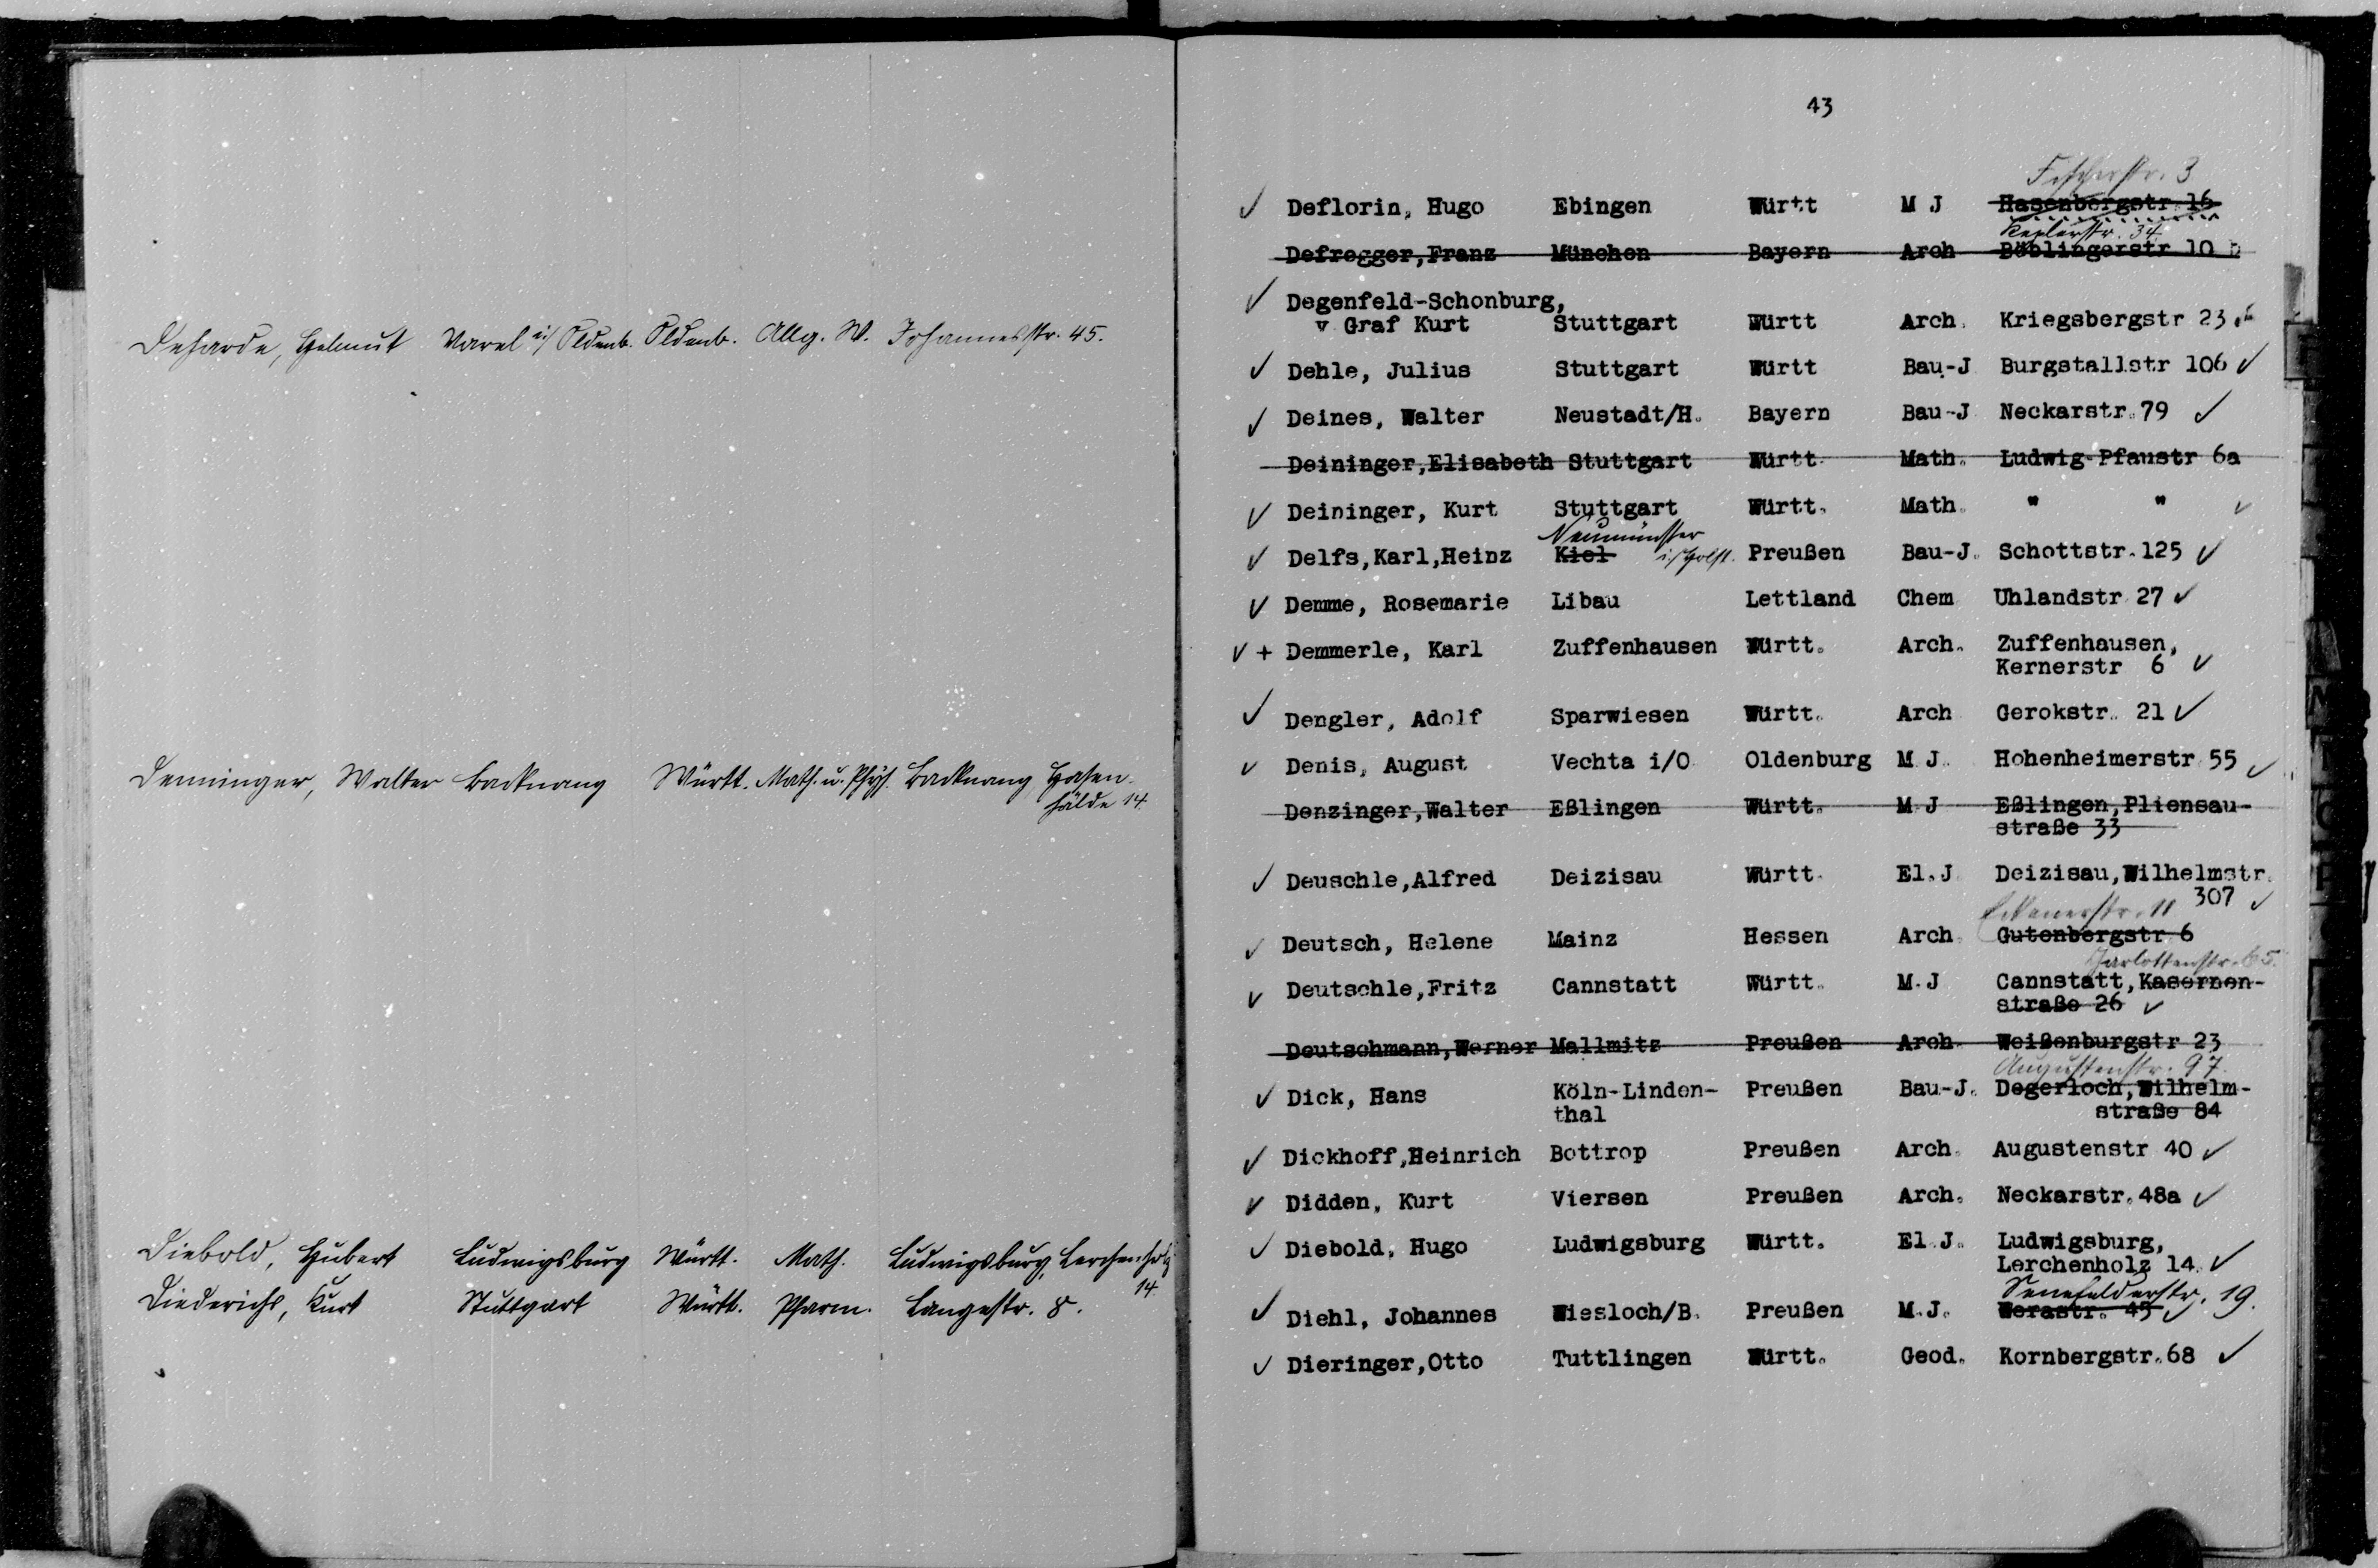 Deharde, Helmut Varel i/ Oldenb. Oldenb. Allg. W. Johannesstr. 45.
Denninger, Walter Backnang Württ. Math. u. Phys. Backnang Hasen-
hälde 14
Diebold, Hubert Ludwigsburg Württ. Math. Ludwigsburg, Lerchenholz
14
Diederichs, Kurt Stuttgart Württ. Pharm. Langestr. 8.
43
3
✓ Deflorin, Hugo Ebingen Württ M J Hasenbergstr. 16
Keplerstr. 34
Defregger, Franz München Bayern Arch Böblingerstr 10 b
✓ Degenfeld-Schonburg,
v Graf Kurt Stuttgart Württ Arch. Kriegsbergstr 23
✓ Dehle, Julius Stuttgart Württ Bau-J Burgstallstr 106 ✓
✓ Deines, Walter Neustadt/H. Bayern Bau-J Neckarstr. 79 ✓
Deininger, Elisabeth Stuttgart Württ. Math. Ludwig-Pfaustr 6a
✓ Deininger, Kurt Stuttgart Württ. Math. " " ✓
Neumünster
✓ Delfs, Karl, Heinz Kiel i/Holst. Preußen Bau-J. Schottstr. 125 ✓
✓ Demme, Rosemarie Libau Lettland Chem Uhlandstr 27 ✓
✓ + Demmerle, Karl Zuffenhausen Württ. Arch. Zuffenhausen,
Kernerstr 6 ✓
✓ Dengler, Adolf Sparwiesen Württ. Arch Gerokstr. 21 ✓
✓ Denis, August Vechta i/O Oldenburg M J. Hohenheimerstr 55 ✓
Denzinger, Walter Eßlingen Württ. M J Eßlingen, Pliensau-
straße 33
✓ Deuschle, Alfred Deizisau Württ. El. J Deizisau, Wilhelmstr.
307 ✓
11
✓ Deutsch, Helene Mainz Hessen Arch. Gutenbergstr. 6
Charlottenstr. 65.
✓ Deutschle, Fritz Cannstatt Württ. M. J Cannstatt, Kasernen-
straße 26 ✓
Deutschmann, Werner Mallmitz Preußen Arch. Weißenburgstr 23
Augustenstr. 97.
✓ Dick, Hans Köln-Linden- Preußen Bau-J. Degerloch, Wilhelm-
thal straße 84
✓ Dickhoff, Heinrich Bottrop Preußen Arch. Augustenstr 40 ✓
✓ Didden, Kurt Viersen Preußen Arch. Neckarstr. 48a ✓
✓ Diebold, Hugo Ludwigsburg Württ. El. J. Ludwigsburg,
Lerchenholz 14. ✓
Senefelderstr. 19.
✓ Diehl, Johannes Wiesloch/B. Preußen M. J. Werastr. 45 ✓
✓ Dieringer, Otto Tuttlingen Württ. Geod. Kornbergstr. 68 ✓